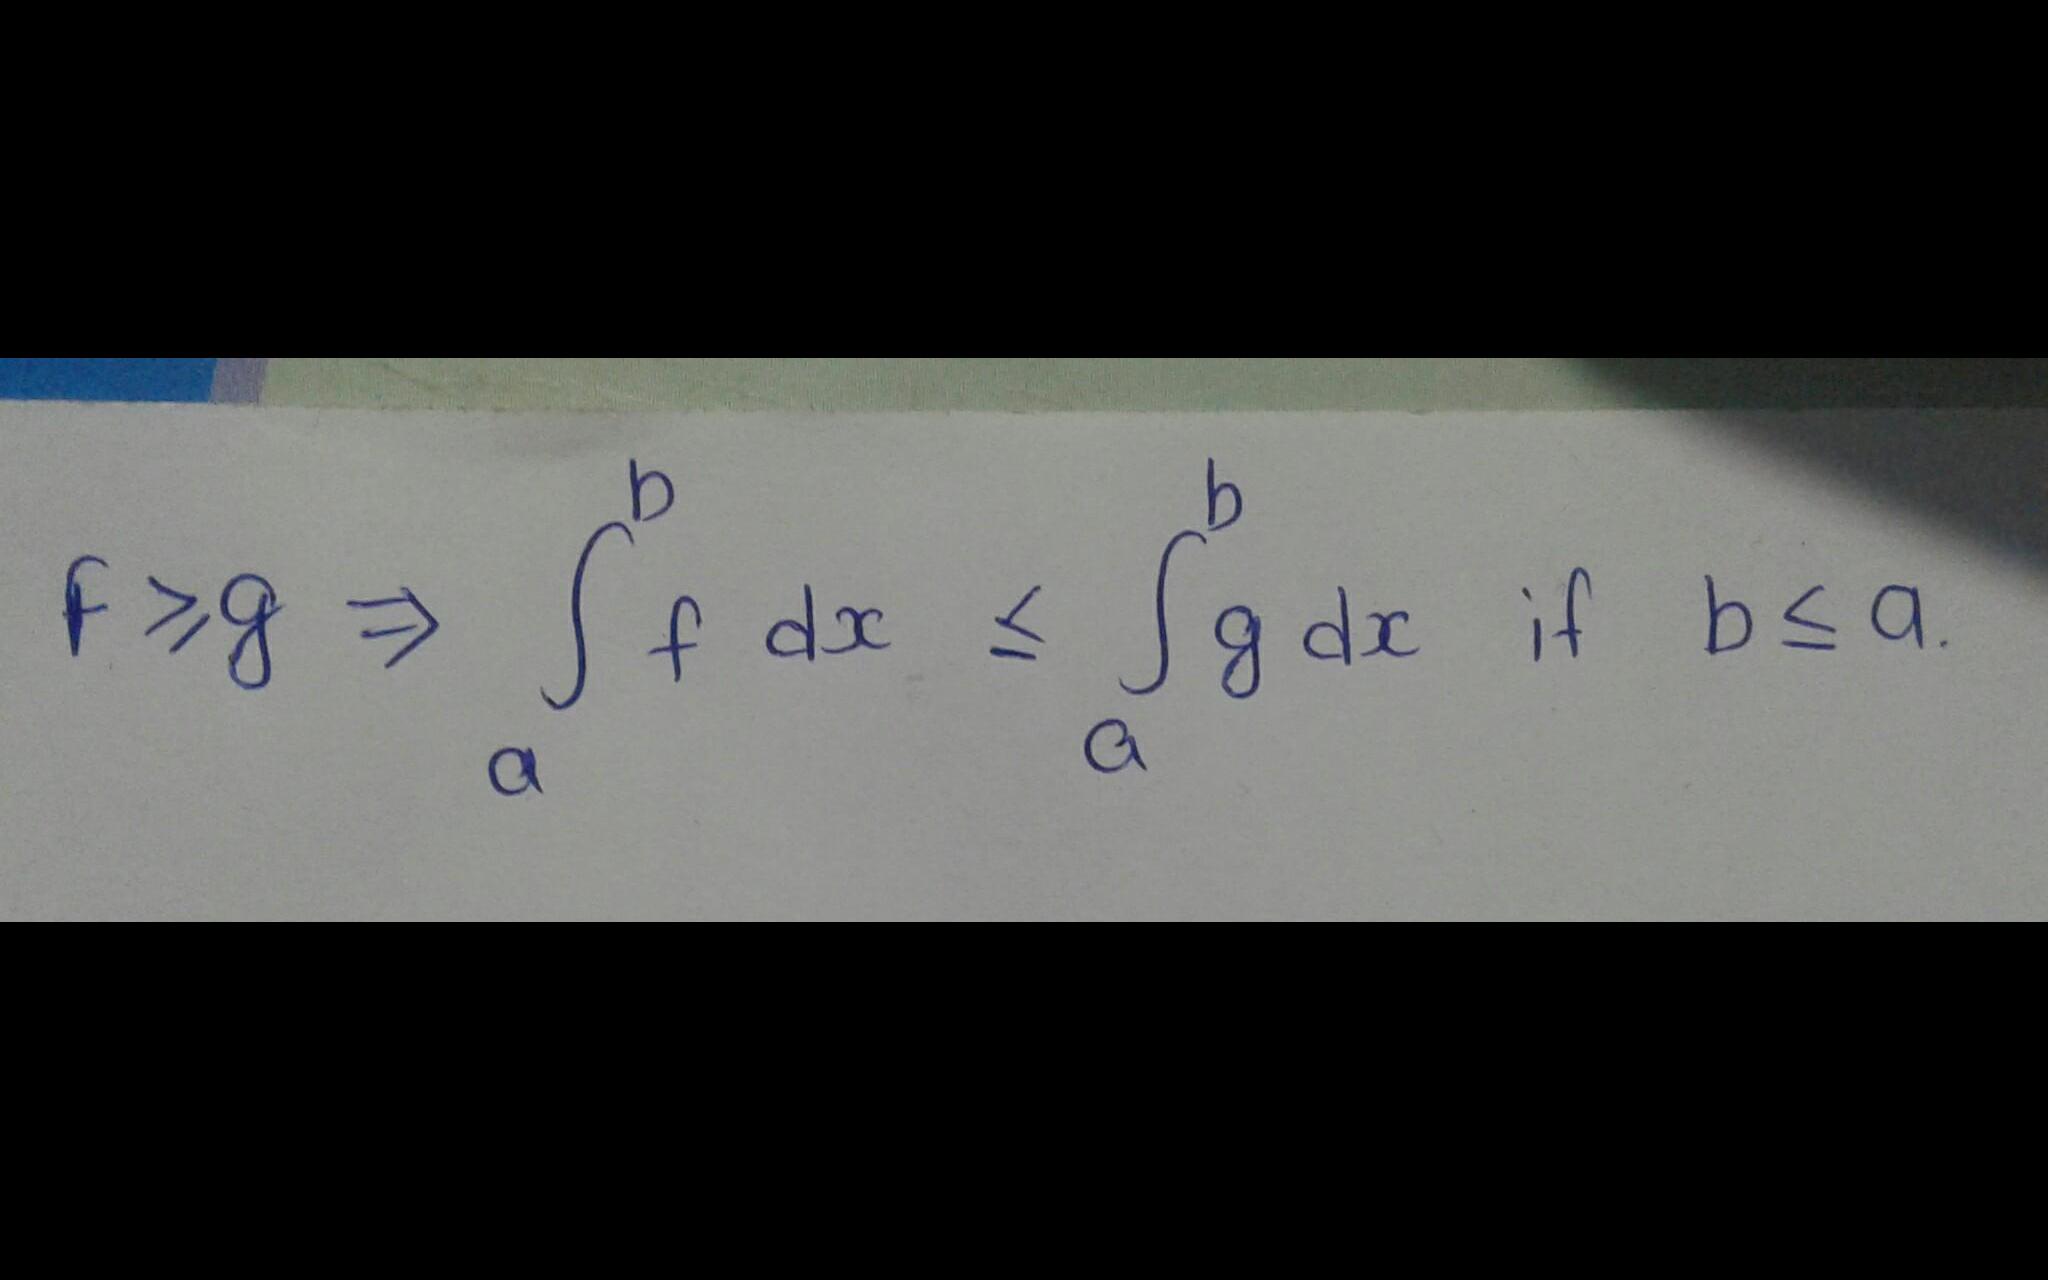 f ≥ g ⇒ ∫_a^b f dx ≤ ∫_a^b g dx if b ≤ a.